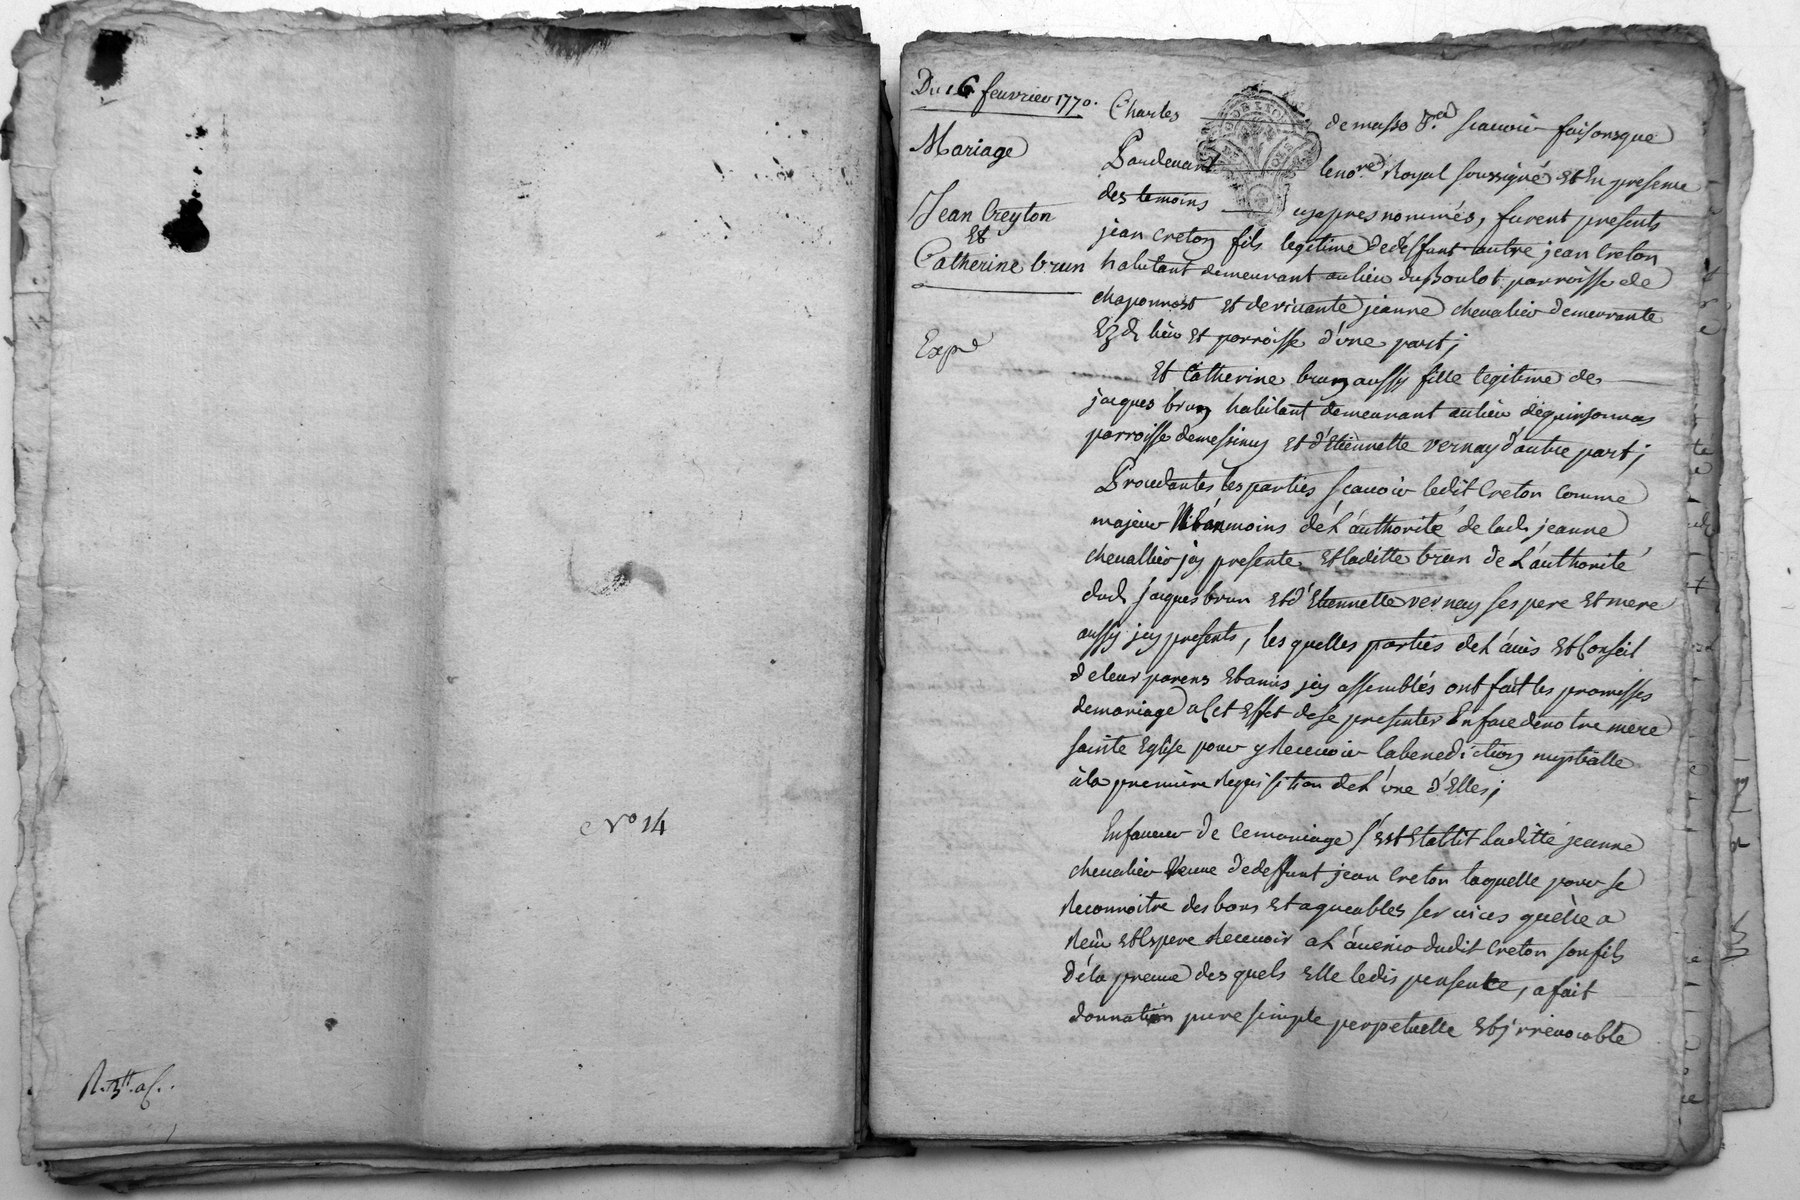 N° 14
R. 3ᵗᵗ. a f.
Du 16 feuvrier 1770.
Mariage
Jean Creyton
Et
Catherine brun
Expé
Charles demasso &.ca scauoir faisons que
Pardeuant le no.re Royal soussigné et En presence
des temoins cy apres nommés, furent presents
jean creton fils legitime de deffunt autre jean Creton
habitant demeurant au lieu du Boulot parroisse de
chaponnost et de viuante jeanne chevalier demeurante
Ez d. lieu et parroisse d'vne part;
Et Catherine brun aussy fille legitime de
jacques brun habitant demeurant au lieu
parroisse de messimy et d'Etiennette vernay d'autre part;
Procedantes les parties scauoir ledit Creton Comme
majeur Néanmoins de L'authorité de lad. jeanne
chevallier jcy presente et laditte brun de L'authorité
dud. jacques brun et d'Etiennette vernay ses pere et mere
aussy jcy presents, les quelles parties de L'auis et Conseil
de leur parens et amis jcy assemblés ont fait les promesses
de mariage a Cet effet de se presenter En face de notre mere
sainte Eglise pour y Receuoir la benediction nuptialle
à la premiere Requisition de L'vne d'Elles;
En faueur de ce mariage s'est Etablit laditte jeanne
chevalier veuve de deffunt jean Creton laquelle pour se
Reconnoitre des bons et agreables seruices qu'elle a
Reçu et Espere Receuoir a L'auenir dudit Creton son fils
de la preuve des quels Elle le dispense, a fait
donnation pure simple perpetuelle et jrreuocable